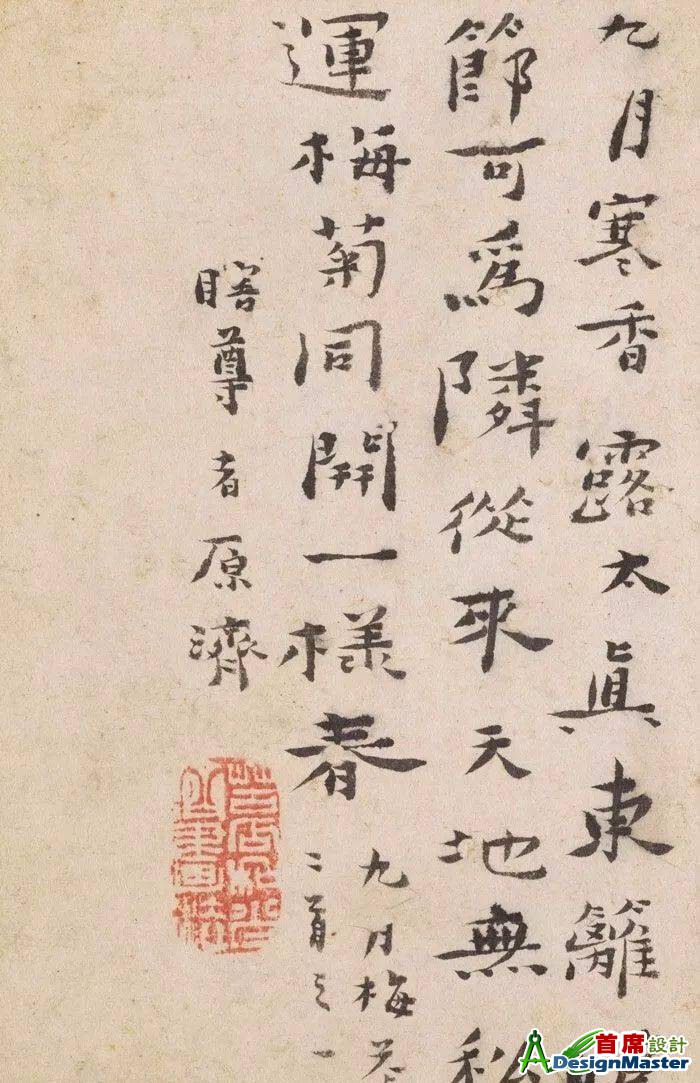 九月寒香露太真東籬
節可爲隣從來天地無私
運梅菊同開一樣春
九月梅花
二首之一
瞎尊者原濟
首席設計
DesignMaster